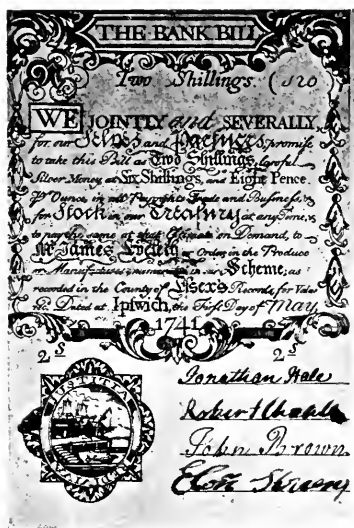 THE BANK BILL
Two Shillings. (
WE JOINTLY and SEVERALLY
for our Selves and Partners, promise
to take this Bill as Two Shillings, lawful
Silver Money, at Six Shillings, and Eight Pence.
Ounce, in all Payments, Trade and Business,
for Stock in our Treasury at any Time,
to pay the same at that Estimate on Demand, to
Mr James or Order, in the Produce
or Manufactures, in our Scheme; as
recorded in the County of Essexs Records, for Value
Dated at Ipswich, the First Day of May,
1741
2s 2s
Jonathan Hale
Robert
John Brown